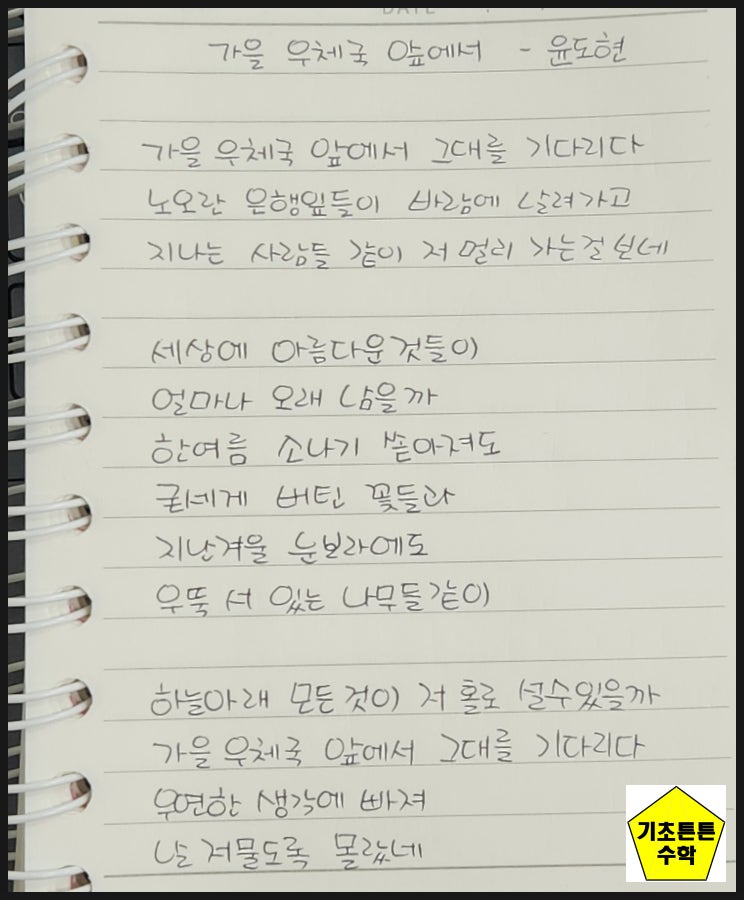 DATE
가을 우체국 앞에서 - 윤도현
가을 우체국 앞에서 그대를 기다리다
노오란 은행잎들이 바람에 날려가고
지나는 사람들 같이 저 멀리 가는걸 보네
세상에 아름다운것들이
얼마나 오래 남을까
한여름 소나기 쏟아져도
굳세게 버틴 꽃들과
지난겨울 눈보라에도
우뚝 서 있는 나무들같이
하늘아래 모든것이 저 홀로 설수있을까
가을 우체국 앞에서 그대를 기다리다
우연한 생각에 빠져
날 저물도록 몰랐네
기초튼튼
수학